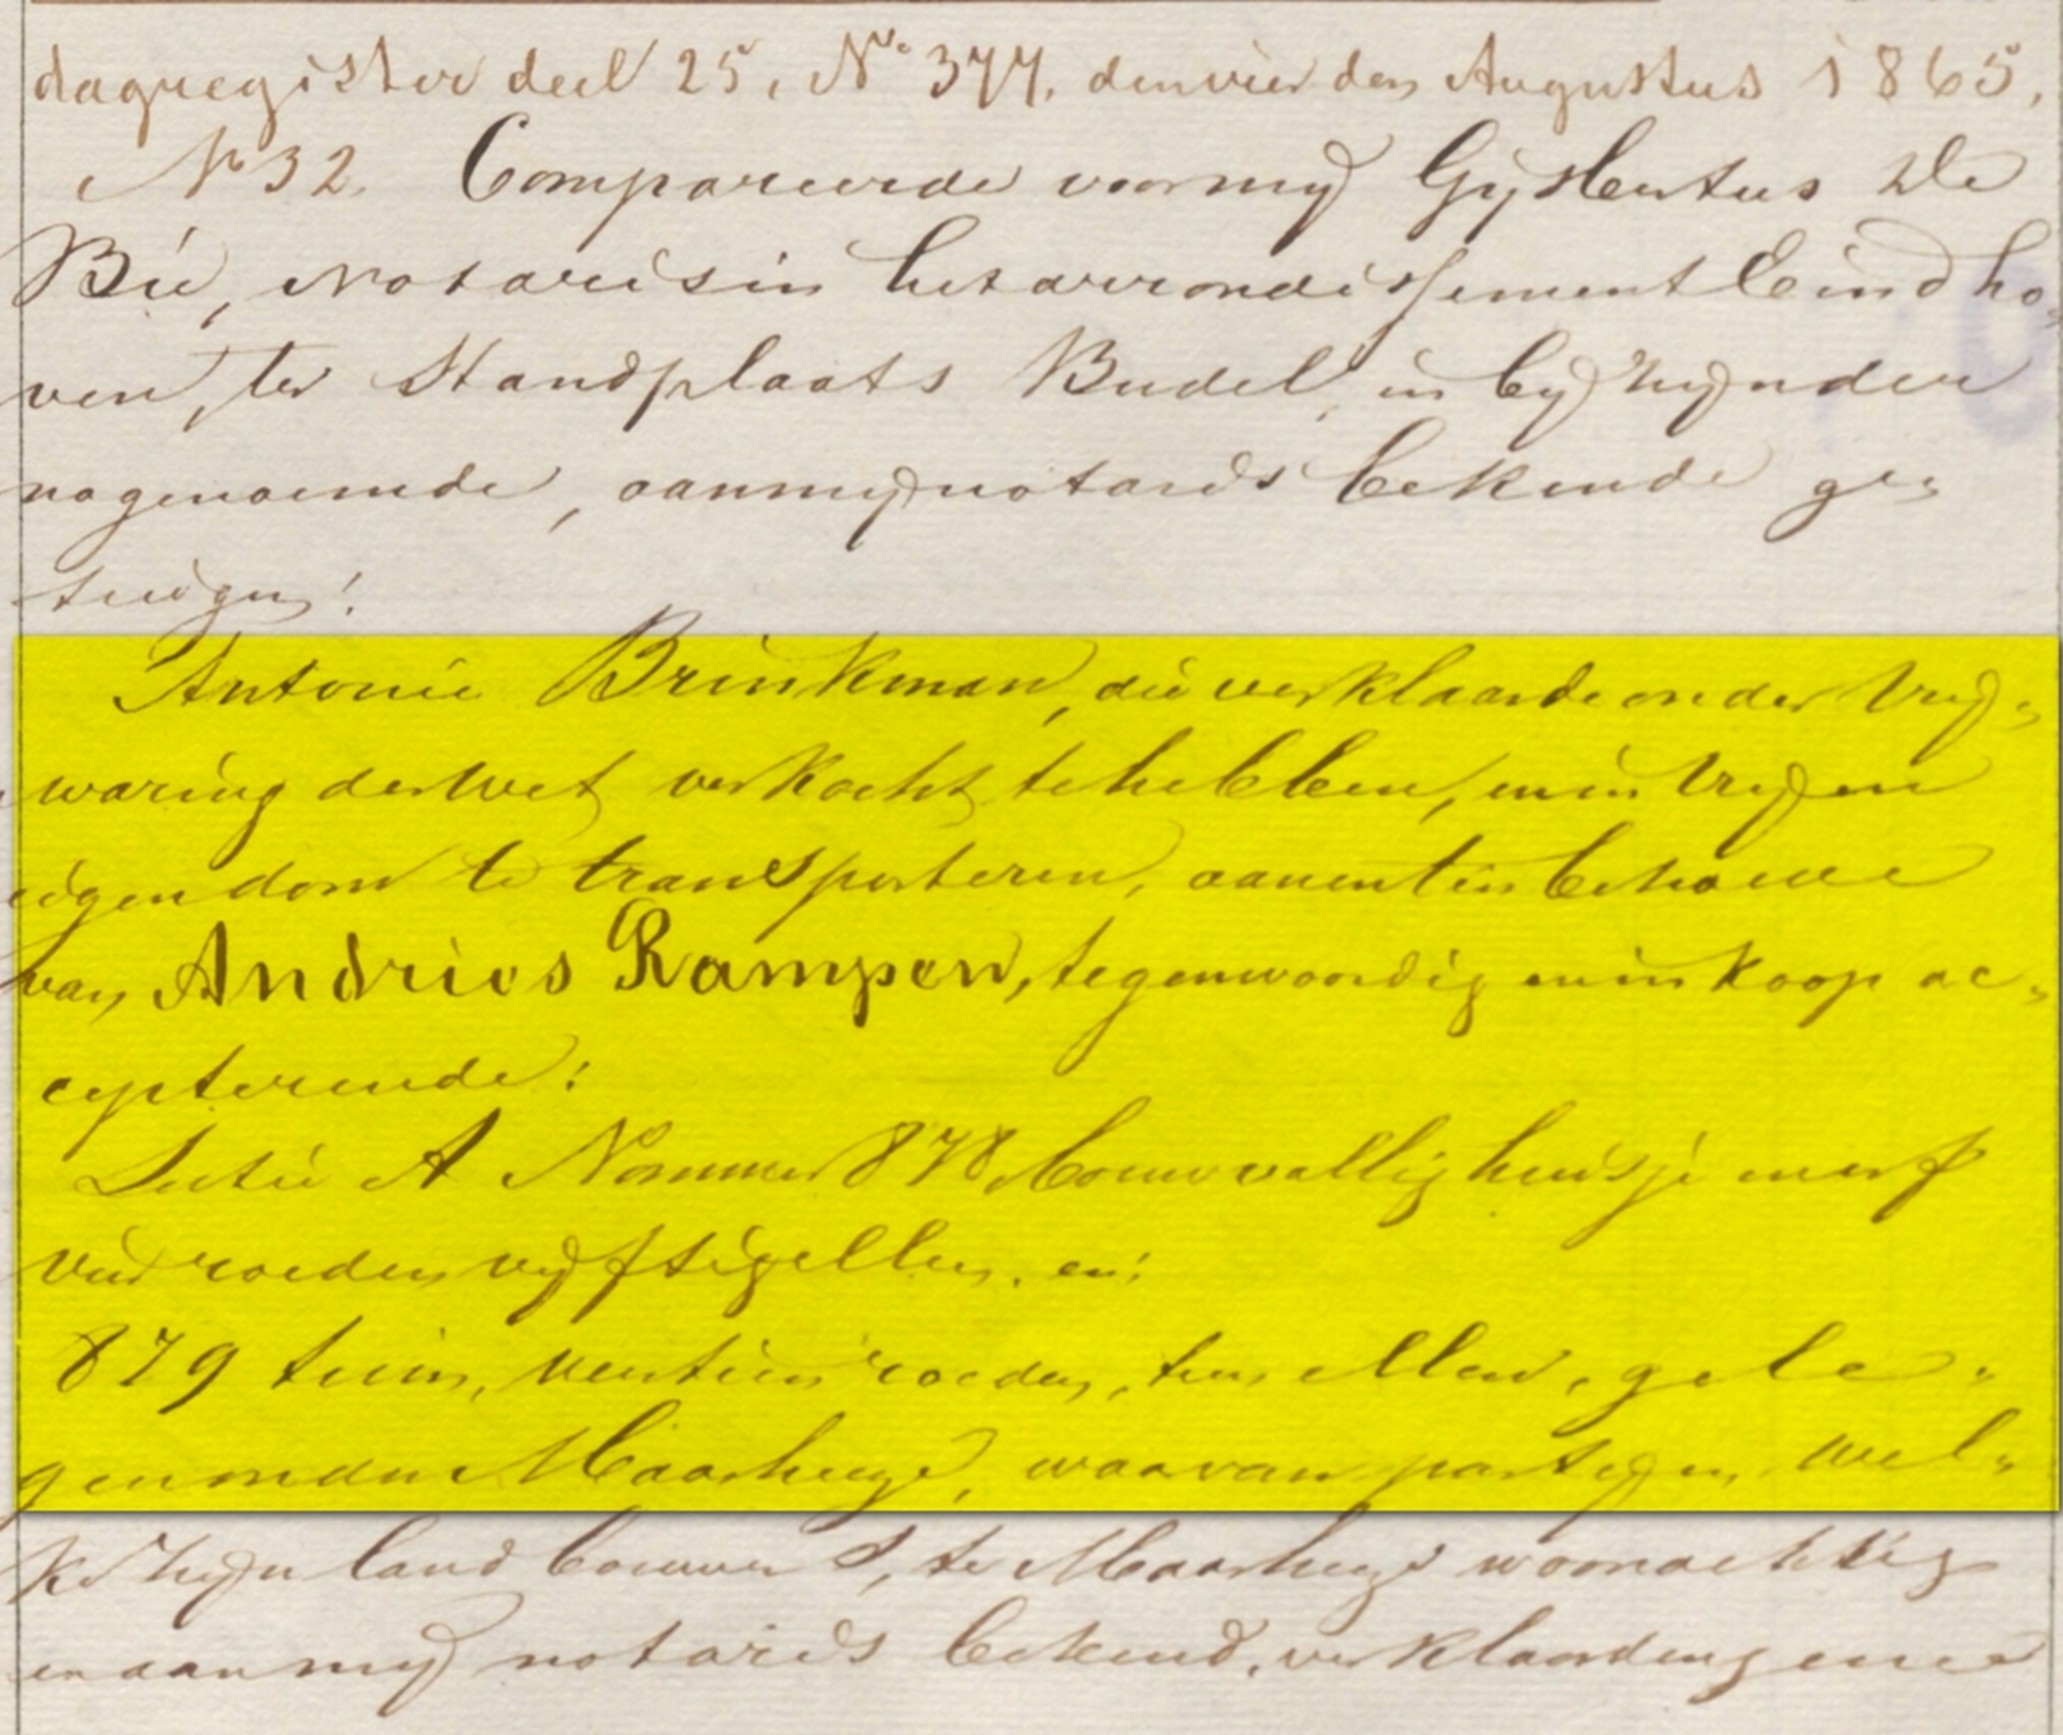 dagregister deel 25, No 377. den vierden Augustus 1865,
No 32. Compareerde voor my Gysbertus De
Bie, Notaris in het arrondissement Eindho„
ven, ter Standplaats Budel, in byzyn der
nagenoemde, aan my notaris bekende ge„
tuigen:
Antonie Brinkman, die verklaarde onder vry„
waring der Wet verkocht te hebben, en in vryen
eigendom te transporteren, aan en ten behoeve
van Andries Rampen, tegenwoordig en in koop ac„
cepterende:
Sectie A Nommer 878 bouwvallig huisje en erf
vier roeden vyftig ellen, en:
879 tuin, roeden, tien ellen, gele„
gen onder Maarheeze, waarvan partyen, wel„
ke zyn landbouwers, te Maarheeze woonachtig
en aan my notaris bekend, verklaarden geene